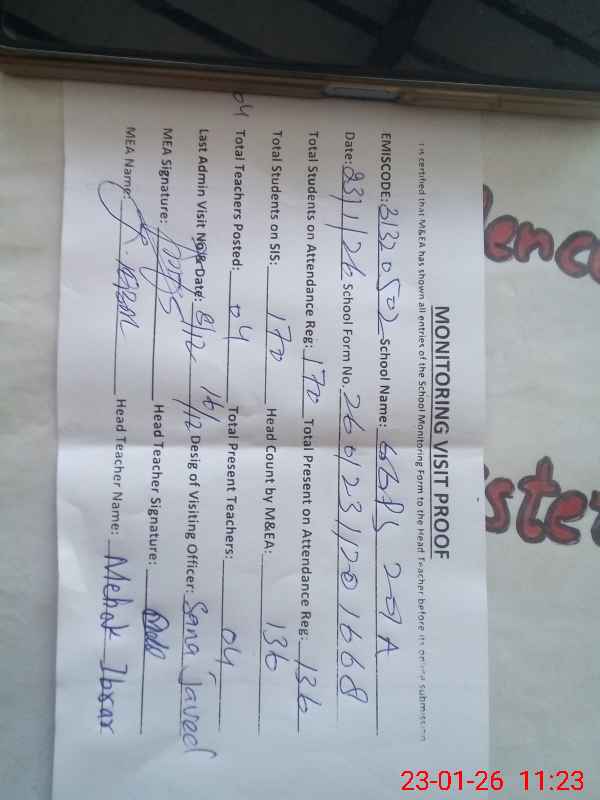 MONITORING VISIT PROOF
It is certified that M&EA has shown all entries of the School Monitoring Form to the Head Teacher before its online submission
EMISCODE: 31320502 School Name: GGPS 201 A
Date: 23/1/26 School Form No. 26012311201668
Total Students on Attendance Reg: 170 Total Present on Attendance Reg: 136
Total Students on SIS: 170 Head Count by M&EA: 136
04 Total Teachers Posted: 04 Total Present Teachers: 04
Last Admin Visit No& Date: 8/12 16/12 Desig of Visiting Officer: Sana Javed
MEA Signature: Head Teacher Signature:
MEA Name: Head Teacher Name: Mehak Ibrar
ence
ster
23-01-26 11:23